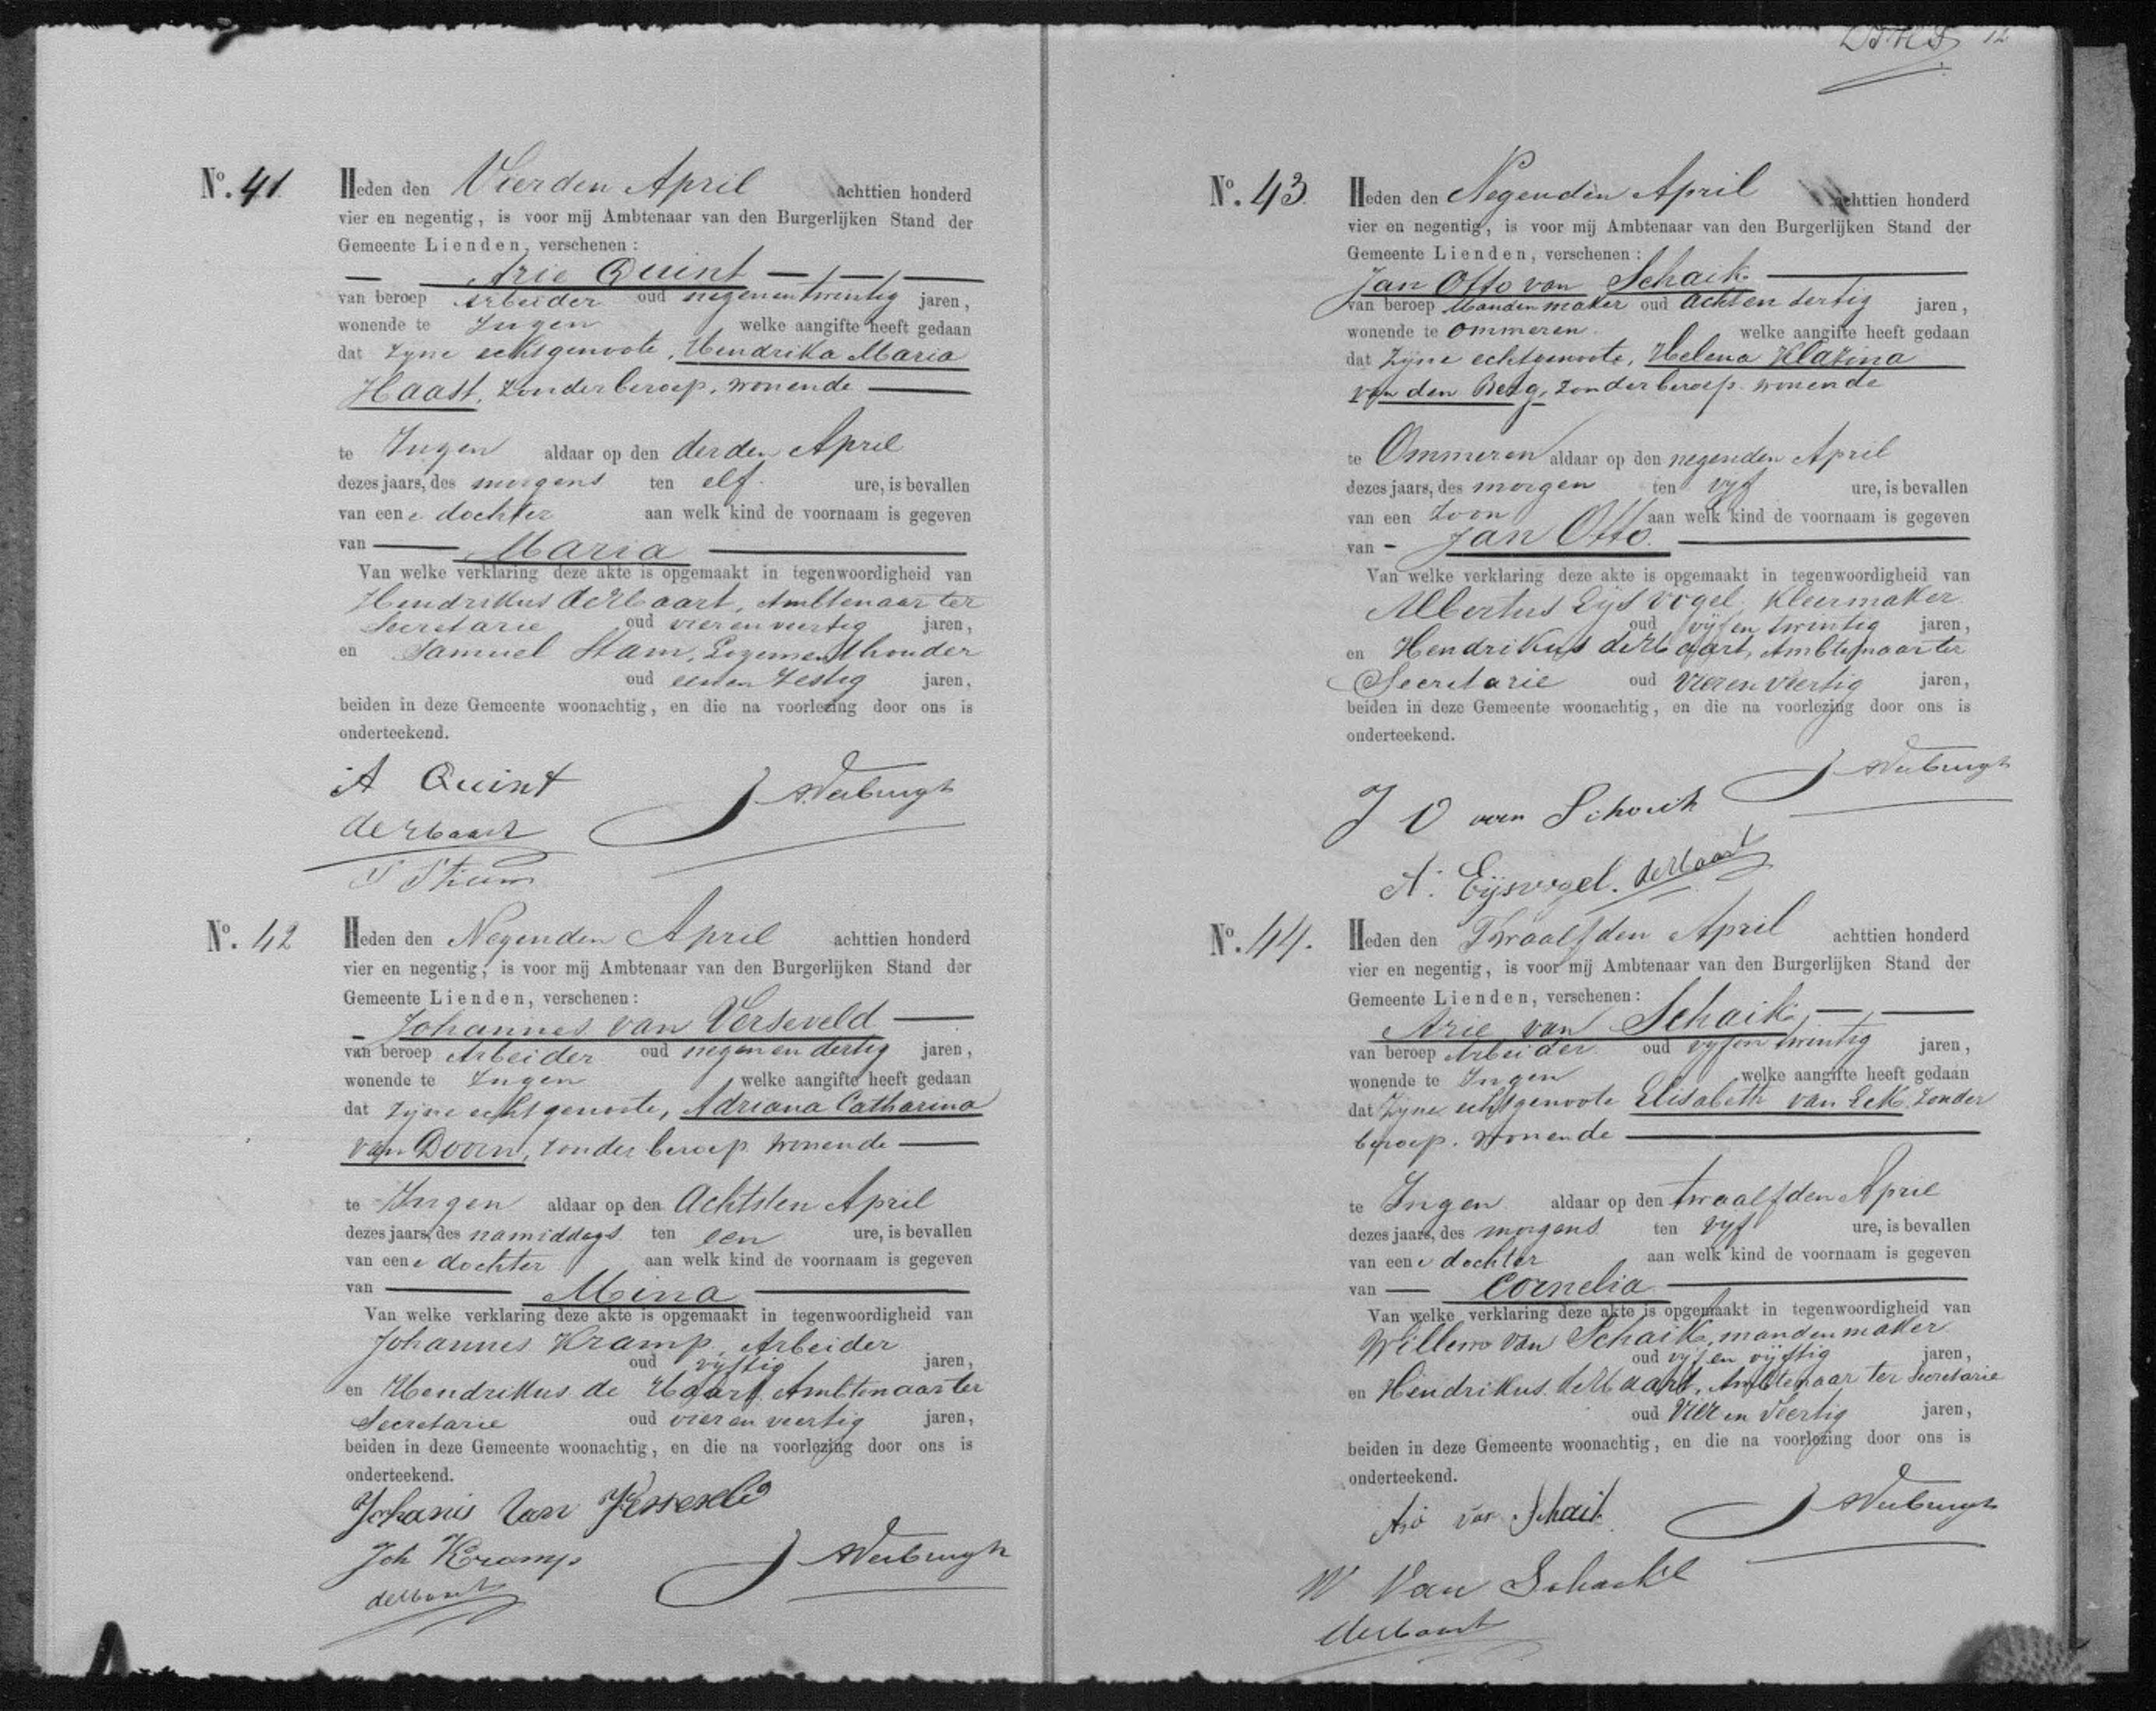 12
No. 41 Heden den Vierden April achttien honderd
vier en negentig, is voor mij Ambtenaar van den Burgerlijken Stand der
Gemeente Lienden, verschenen:
Arie Quint
van beroep Arbeider oud negenentwintig jaren,
wonende te Ingen welke aangifte heeft gedaan
dat zyne echtgenoote, Hendrika Maria
Haast, zonder beroep, wonende
te Ingen aldaar op den derden April
dezes jaars, des morgens ten elf ure, is bevallen
van eene dochter aan welk kind de voornaam is gegeven
van Maria
Van welke verklaring deze akte is opgemaakt in tegenwoordigheid van
Hendrikus de Haart, Ambtenaar ter
Secretarie oud vier en veertig jaren,
en Samuel Stam, Logementhouder
oud een en zestig jaren,
beiden in deze Gemeente woonachtig, en die na voorlezing door ons is
onderteekend.
A Quint
de Haart
S Stam
No. 42 Heden den Negenden April achttien honderd
vier en negentig, is voor mij Ambtenaar van den Burgerlijken Stand der
Gemeente Lienden, verschenen:
Johannes van Verseveld
van beroep Arbeider oud negen en dertig jaren,
wonende te Ingen welke aangifte heeft gedaan
dat zyne echtgenoote, Adriana Catharina
van Doorn, zonder beroep wonende
te Ingen aldaar op den Achtsten April
dezes jaars, des namiddags ten een ure, is bevallen
van eene dochter aan welk kind de voornaam is gegeven
van Mina
Van welke verklaring deze akte is opgemaakt in tegenwoordigheid van
Johannes Kramp, Arbeider
oud vyftig jaren,
en Hendrikus de Haart, Ambtenaar ter
Secretarie oud vier en veertig jaren,
beiden in deze Gemeente woonachtig, en die na voorlezing door ons is
onderteekend.
Johanis Van
Joh Kramp
de Haart
No. 43. Heden den Negenden April achttien honderd
vier en negentig, is voor mij Ambtenaar van den Burgerlijken Stand der
Gemeente Lienden, verschenen:
Jan Otto van Schaik
van beroep Mandenmaker oud acht en dertig jaren,
wonende te Ommeren welke aangifte heeft gedaan
dat zyne echtgenoote, Helena Klazina
van den Berg, zonder beroep wonende
te Ommeren aldaar op den negenden April
dezes jaars, des morgen ten vyf ure, is bevallen
van een zoon aan welk kind de voornaam is gegeven
van Jan Otto.
Van welke verklaring deze akte is opgemaakt in tegenwoordigheid van
Albertus Eijsvogel, Kleermaker
oud vijf en twintig jaren,
en Hendrikus de Haart, Ambtenaar ter
Secretarie oud vier en veertig jaren,
beiden in deze Gemeente woonachtig, en die na voorlezing door ons is
onderteekend.
J O van Schaik
A. Eijsvogel. de Haart
No. 44. Heden den Twaalfden April achttien honderd
vier en negentig, is voor mij Ambtenaar van den Burgerlijken Stand der
Gemeente Lienden, verschenen:
Arie van Schaik
van beroep Arbeider oud vyf en twintig jaren,
wonende te Ingen welke aangifte heeft gedaan
dat zyne echtgenoote Elisabeth van Eck, zonder
beroep, wonende
te Ingen aldaar op den twaalfden April
dezes jaars, des morgens ten vyf ure, is bevallen
van eene dochter aan welk kind de voornaam is gegeven
van Cornelia
Van welke verklaring deze akte is opgemaakt in tegenwoordigheid van
Willem van Schaik, mandenmaker
oud vyf en vyftig jaren,
en Hendrikus de Haart, Ambtenaar ter Secretarie
oud vier en veertig jaren,
beiden in deze Gemeente woonachtig, en die na voorlezing door ons is
onderteekend.
van Schaik
W Van
de Haart